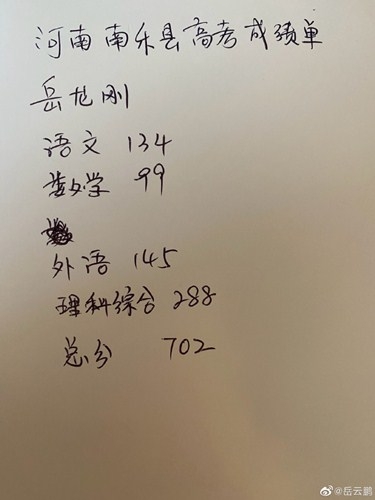 河南南乐县高考成绩单
岳龙刚
语文 134
数学 99
外语 145
理科综合 288
总分 702
@岳云鹏